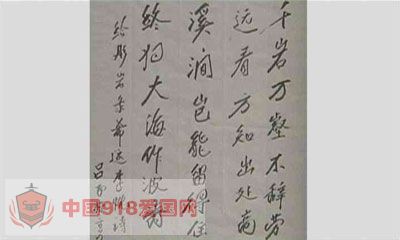 千岩万壑不辞劳
远看方知出处高
溪涧岂能留得住
终归大海作波涛
岩 希运李忱诗
吕
中国918爱国网